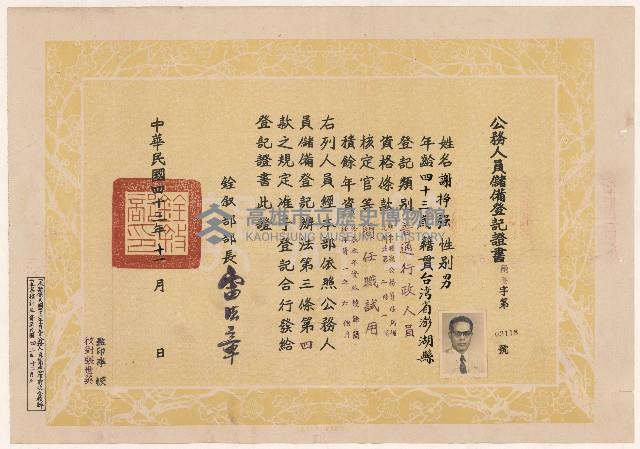 公務人員儲備登記證書
字第
63118
號
姓名謝掙强性別男
年齡四十三歲籍貫台灣省澎湖縣
登記類別普通行政人員
資格條款
核定官等簡任職試用
積餘年資
右列人員經本部依照公務人
員儲備登記辦法第三條第四
款之規定准予登記合行發給
登記證書此證
銓敘部部長雷法章
中華民國四十三年十一月 日
監印李
校對張世英
高雄市立歷史博物館
KAOHSIUNG MUSEUM OF HISTORY